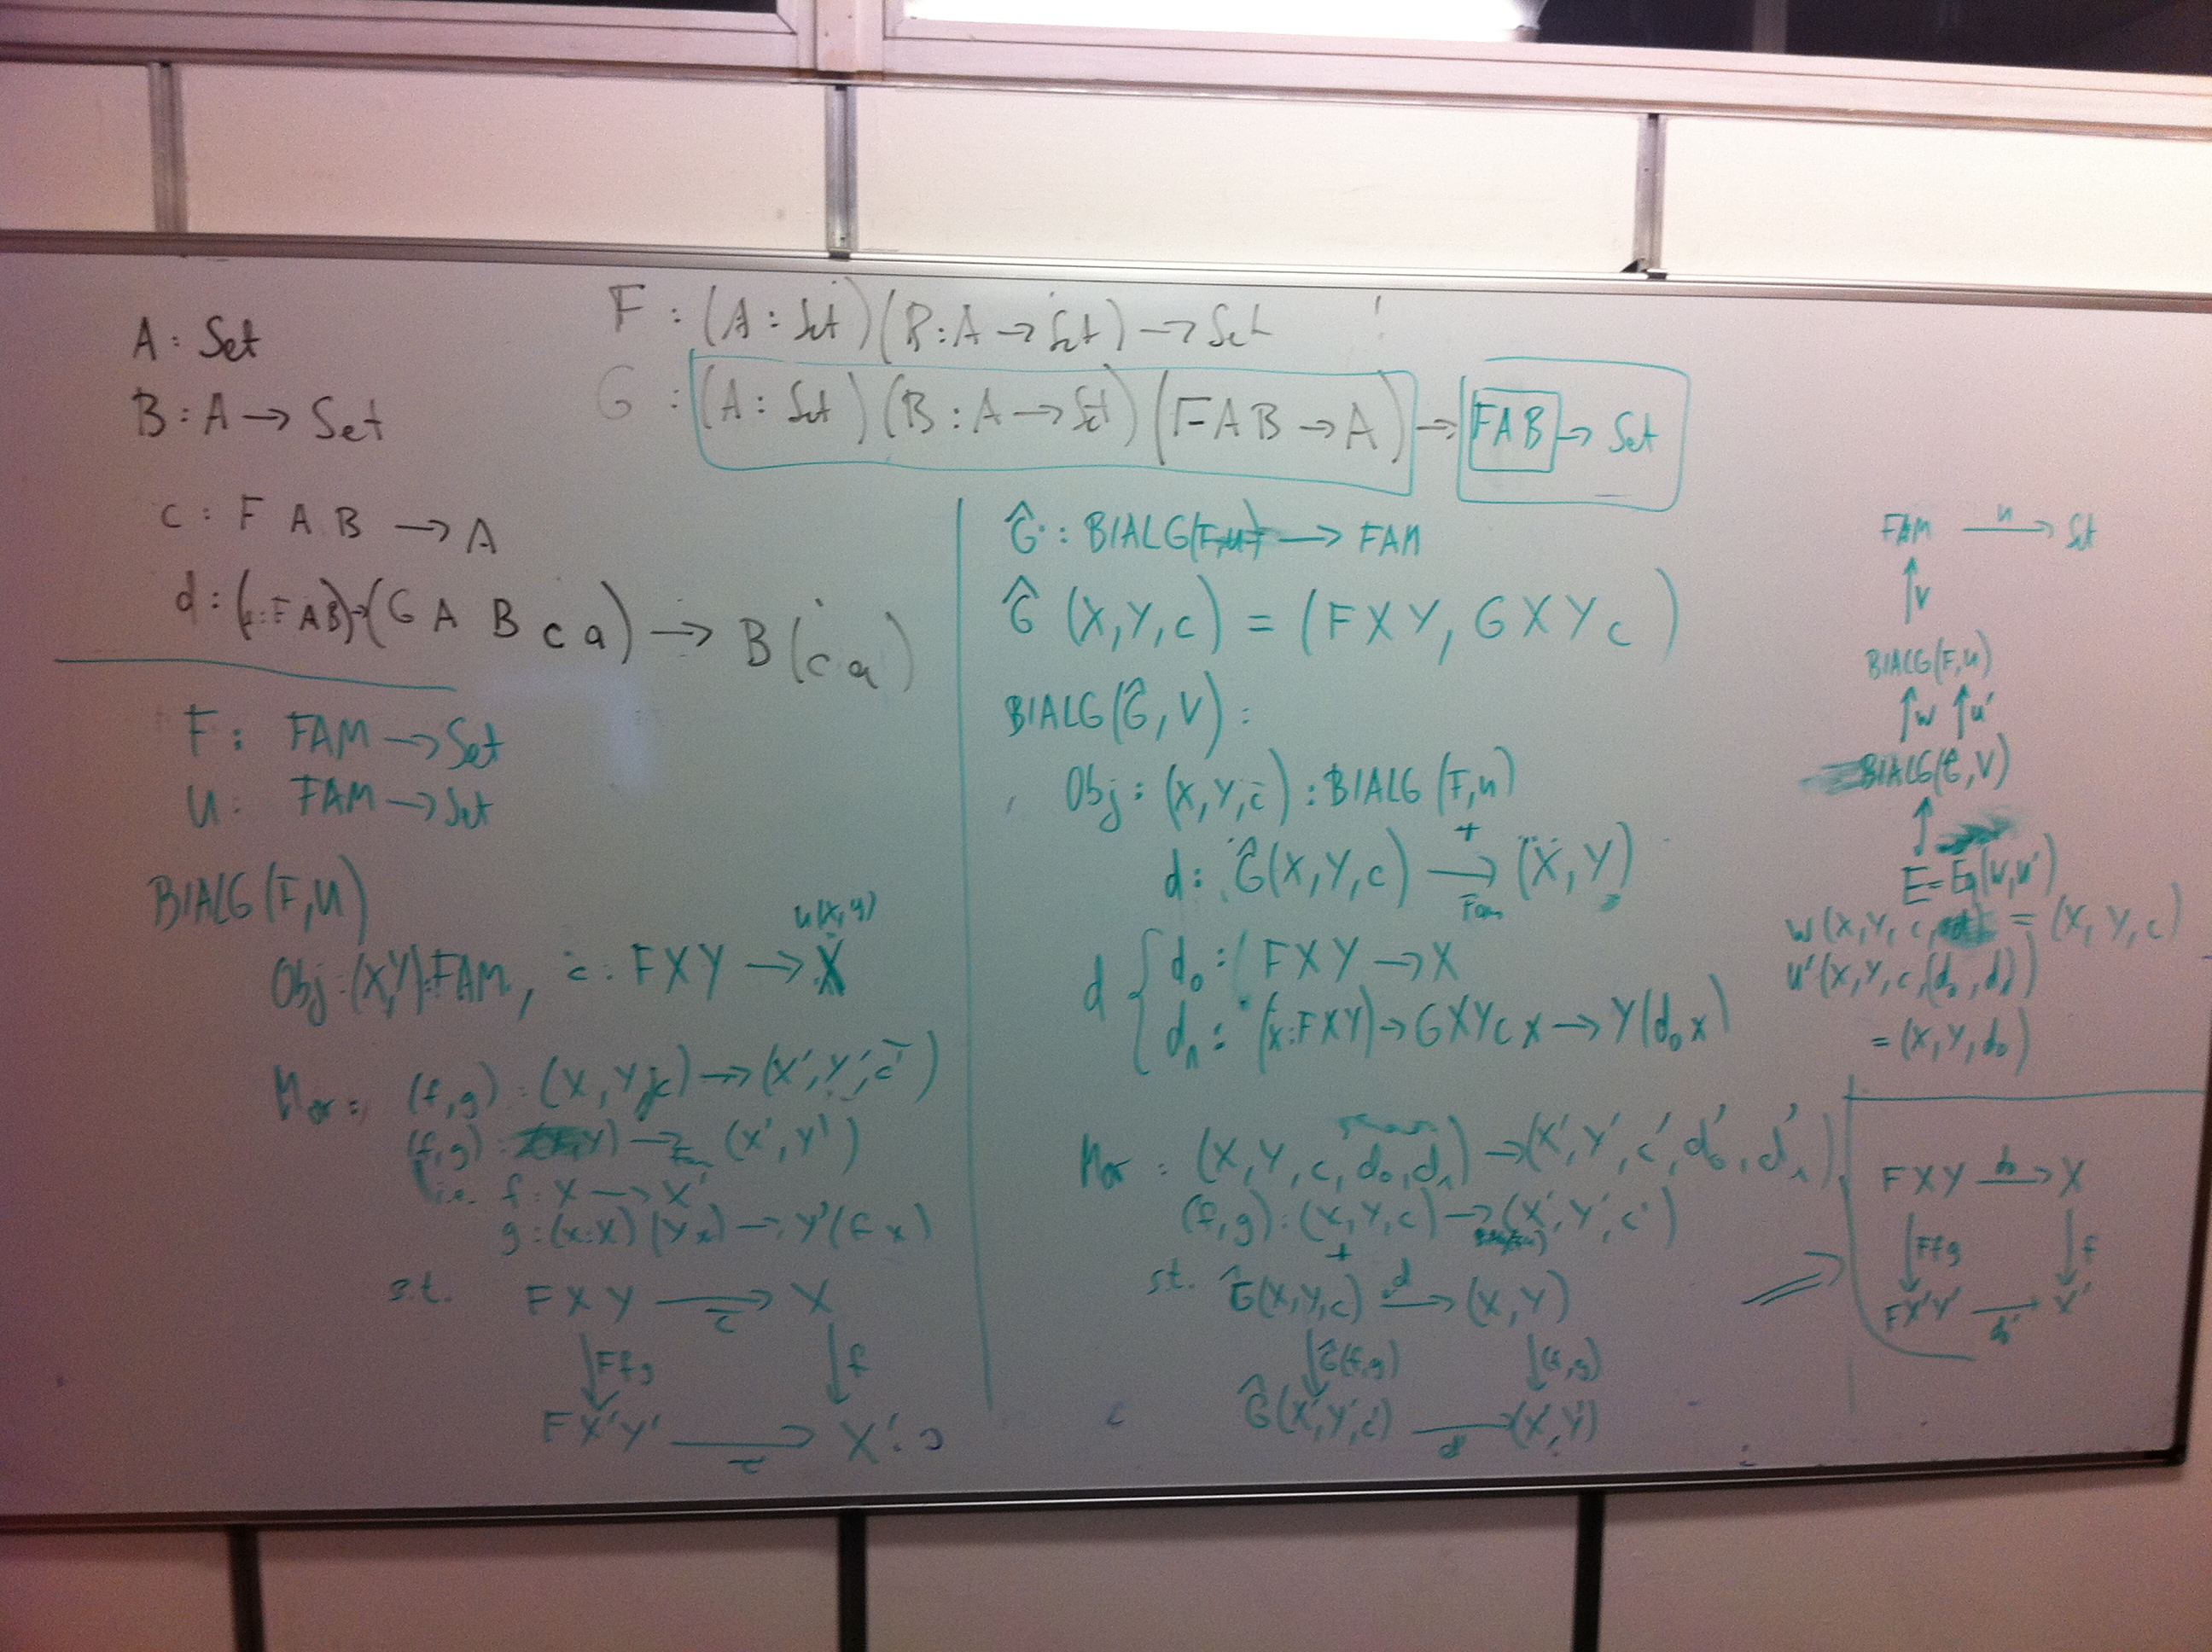 A : Set
B : A → Set
F : (A : Set) (B : A → Set) → Set
G : (A : Set) (B : A → Set) (FAB → A) → FAB → Set
c : F A B → A
d : (x : F A B) → (G A B c a) → B (c a)
F : FAM → Set
U : FAM → Set
BIALG(F,U)
Obj : (X,Y) : FAM, c : FXY → X
U(X,Y)
Mor : (f,g) : (X, Y, c) → (X', Y', c')
(f,g) : → Fam (X', Y')
i.e. f : X → X'
g : (x:X) (Y x) → Y'(f x)
s.t. F X Y → X
c
↓ Ffg ↓ f
FX'Y' → X'
Ĝ : BIALG(F,U) → FAM
Ĝ (X,Y,c) = (FXY, GXYc)
BIALG(Ĝ, V) :
Obj : (X,Y,c) : BIALG(F,U)
d : Ĝ(X,Y,c) → Fam (X,Y)
d { d₀ : FXY → X
d₁ : (x:FXY) → GXYcx → Y(d₀x)
Mor : (X,Y,c,d₀,d₁) → (X',Y',c',d₀',d₁')
(f,g) : (X,Y,c) → (X',Y',c')
st. Ĝ(X,Y,c) d → (X,Y)
↓ Ĝ(f,g) ↓ (f,g)
Ĝ(X',Y',c') → d' (X',Y')
FAM U → Set
↑ V
BIALG(F,U)
↑ W ↑ U'
BIALG(Ĝ,V)
↑
E = Eq(W,U')
W(X,Y,c, = (X,Y,c)
U'(X,Y,c,(d₀,d₁))
= (X,Y,d₀)
FXY d₀ → X
↓ Ffg ↓ f
FX'Y' → d₀' X'